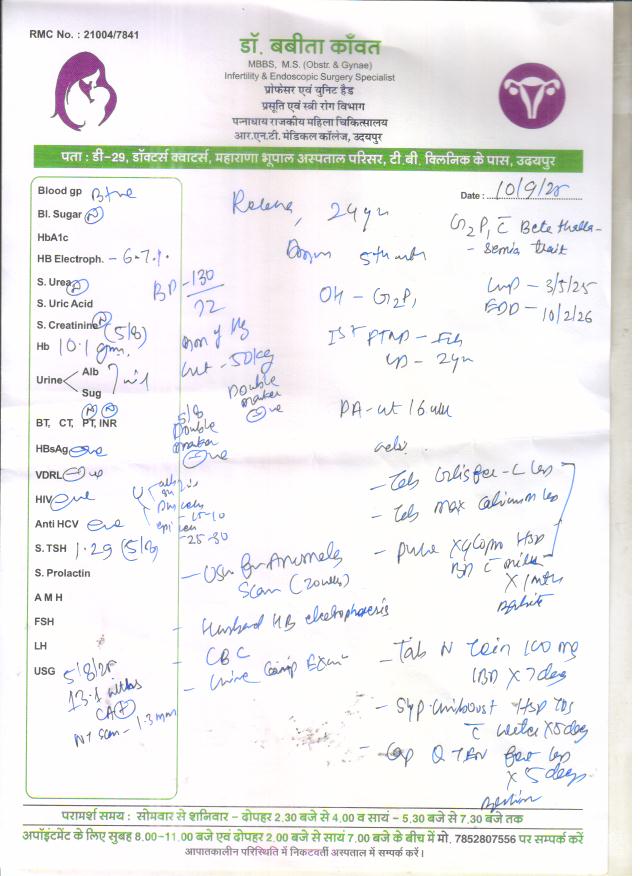 RMC No. : 21004/7841
डॉ. बबीता काँवत
MBBS, M.S. (Obstr. & Gynae)
Infertility & Endoscopic Surgery Specialist
प्रोफेसर एवं युनिट हैड
प्रसूति एवं स्त्री रोग विभाग
पन्नाधाय राजकीय महिला चिकित्सालय
आर.एन.टी. मेडिकल कॉलेज, उदयपुर
पता : डी-29, डॉक्टर्स क्वाटर्स, महाराणा भूपाल अस्पताल परिसर, टी.बी. क्लिनिक के पास, उदयपुर
Date : 10/9/25
24 yr
G2P1 c Beta thala-
- ssemia trait
LMP - 3/5/25
EDD - 10/2/26
OH - G2P1
Ist FTND - Fch
- 2yr
PA - ut 16 wks
Blood gp B+ve
Bl. Sugar N
HbA1c
HB Electroph. - 6.7%
S. Urea N
S. Uric Acid
S. Creatinine N (5/8)
Hb 10.1 gm.
Urine Alb Sug nil
BT, CT, PT, INR N N
HBsAg -ve
VDRL -ve
HIV -ve
Anti HCV -ve
S. TSH 1.29 (5/8)
S. Prolactin
A M H
FSH
LH
USG 5/8/25
13.1 wks
CA +
NT scan - 1.3 mm
BP - 130/72
wt - 50kg
Double marker -ve
5/8
Double marker -ve
pus cells
- 15-10
epi cell
- 25-30
- USG for Anomaly
Scan (20 wks)
- Husband HB electrophoresis
- CBC
- Urine Comp Exam
adv.
- Tab
- Tab Max Calcium
HSP
BD c milk
X 1 mth
- Tab N 100 mg
1 BD X 7 days
- Syp HSP TDS
c water X 5 days
- Cap
X 5 days
परामर्श समय : सोमवार से शनिवार - दोपहर 2.30 बजे से 4.00 व सायं - 5.30 बजे से 7.30 बजे तक
अपॉइंटमेंट के लिए सुबह 8.00-11.00 बजे एवं दोपहर 2.00 बजे से सायं 7.00 बजे के बीच में मो. 7852807556 पर सम्पर्क करें
आपातकालीन परिस्थिति में निकटवर्ती अस्पताल में सम्पर्क करें।